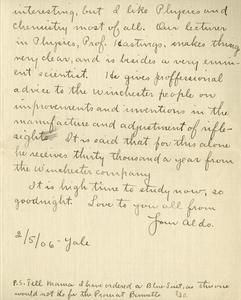 interesting, but I like Physics and
chemistry most of all. Our lecturer
in Physics, Prof. Hastings, makes things
very clear, and is besides a very emin-
ent scientist. He gives proffessional
advice to the Winchester people on
improvements and inventions in the
manufacture and adjustment of rifle-
sights. It is said that for this alone
he receives thirty thousand a year from
the Winchester company
It is high time to study now, so
goodnight. Love to you all from
Your Aldo.
2/5/06 - Yale
P.S. Tell Mama I have ordered a Blue Suit, as this one
would not do for the Prom at